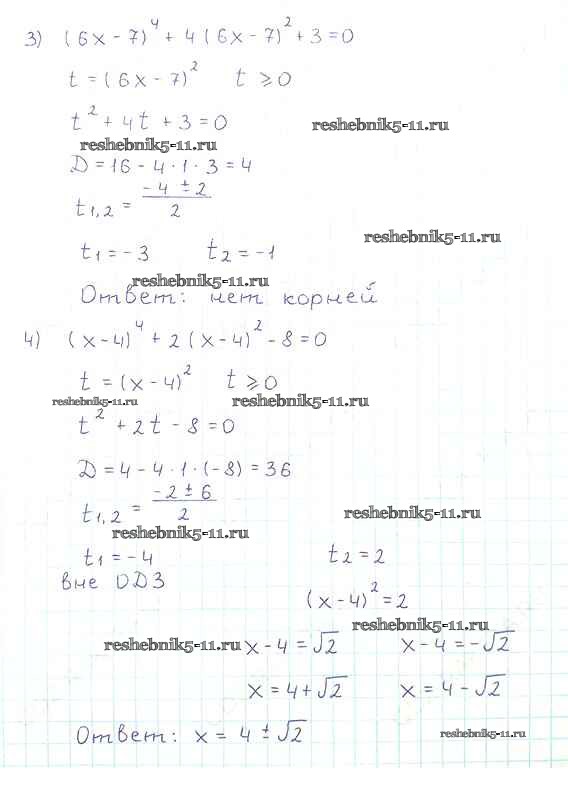 3) (6x-7)⁴ + 4(6x-7)² + 3 = 0
t = (6x-7)² t ⩾ 0
t² + 4t + 3 = 0
reshebnik5-11.ru
reshebnik5-11.ru
D = 16 - 4·1·3 = 4
t₁,₂ = (-4 ± 2)/2
reshebnik5-11.ru
t₁ = -3 t₂ = -1
reshebnik5-11.ru
Ответ: нет корней
4) (x-4)⁴ + 2(x-4)² - 8 = 0
t = (x-4)² t ⩾ 0
reshebnik5-11.ru reshebnik5-11.ru
t² + 2t - 8 = 0
D = 4 - 4·1·(-8) = 36
t₁,₂ = (-2 ± 6)/2
reshebnik5-11.ru
reshebnik5-11.ru
t₁ = -4 t₂ = 2
вне ОДЗ
(x-4)² = 2
reshebnik5-11.ru
reshebnik5-11.ru x-4 = √2 x-4 = -√2
x = 4+√2 x = 4-√2
Ответ: x = 4 ± √2
reshebnik5-11.ru